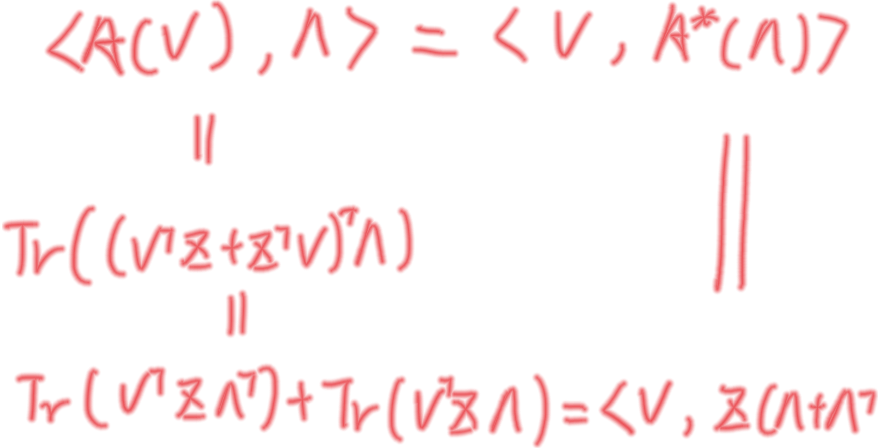 ⟨A(V), Λ⟩ = ⟨V, A*(Λ)⟩
=
Tr((VᵀZ + ZᵀV)ᵀΛ)
=
Tr(VᵀZΛᵀ) + Tr(VᵀZΛ) = ⟨V, Z(Λ+Λᵀ